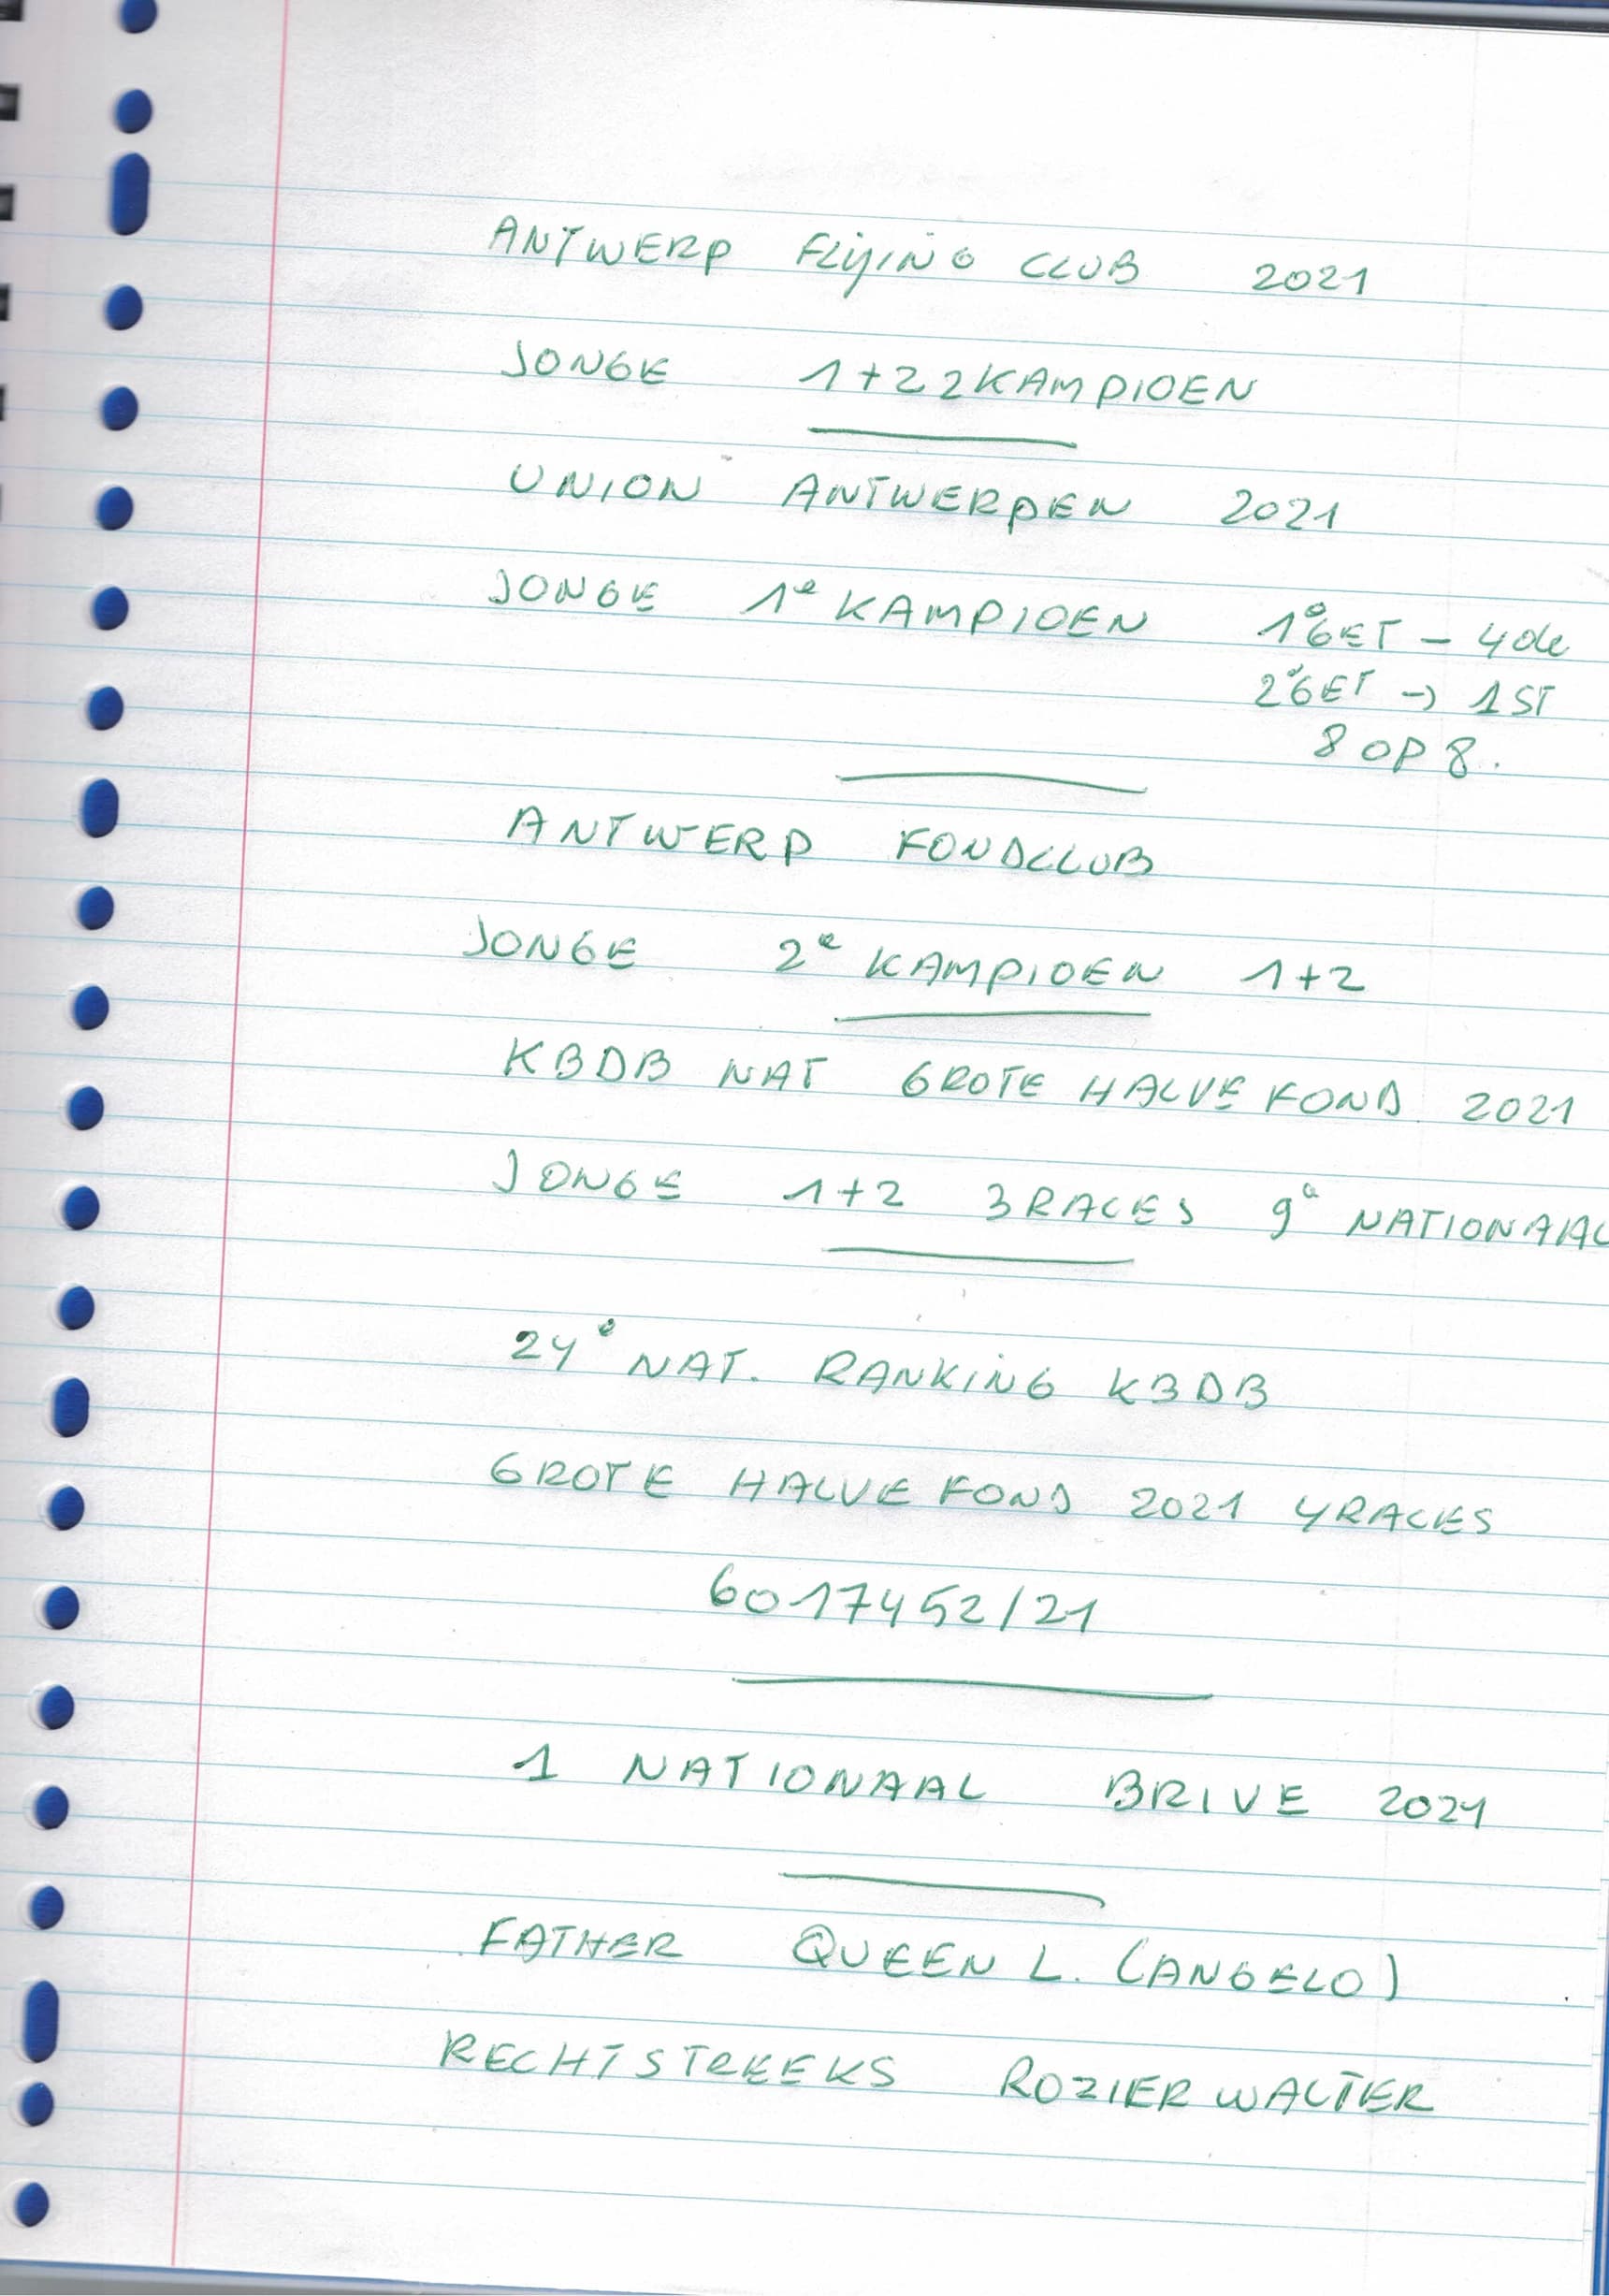 ANTWERP FLYING CLUB 2021
JONGE 1+2 2KAMPIOEN
UNION ANTWERPEN 2021
JONGE 1e KAMPIOEN 1eGET - 4de
2eGET → 1ST
8 OP 8.
ANTWERP FONDCLUB
JONGE 2e KAMPIOEN 1+2
KBDB NAT GROTE HALVE FOND 2021
JONGE 1+2 3RACES 9e NATIONAAL
24e NAT. RANKING KBDB
GROTE HALVE FOND 2021 4RACES
6017452/21
1 NATIONAAL BRIVE 2021
FATHER QUEEN L. (ANGELO)
RECHTSTREEKS ROZIER WALTER